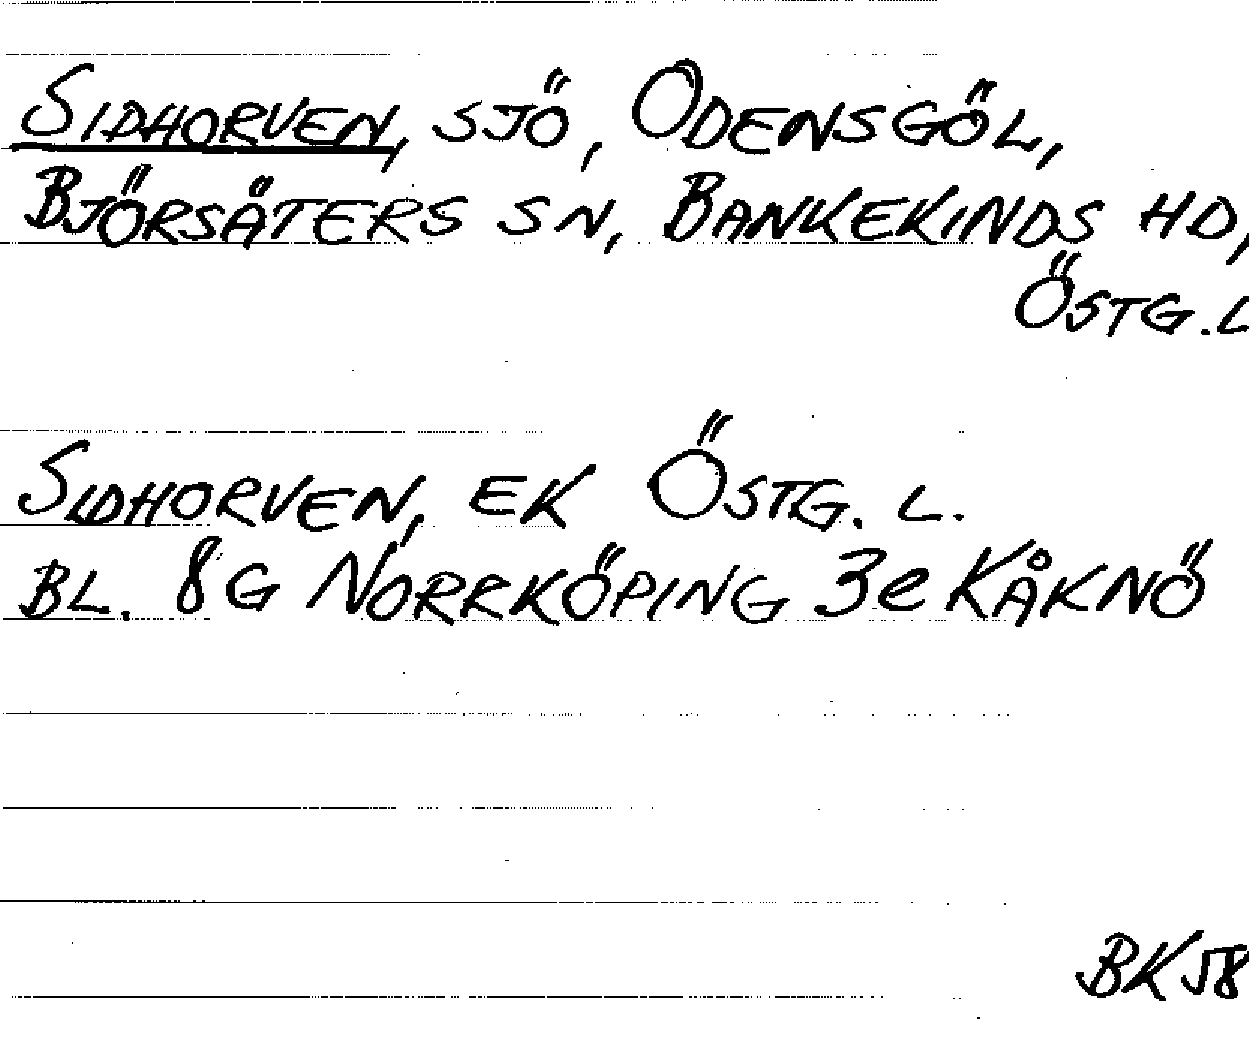 SIDHORVEN, SJÖ, ODENSGÖL,
BJÖRSÄTERS SN, BANKEKINDS HD,
ÖSTG. L
SIDHORVEN, EK ÖSTG. L.
BL. 8G NORRKÖPING 3e KÅKNÖ
BK 58